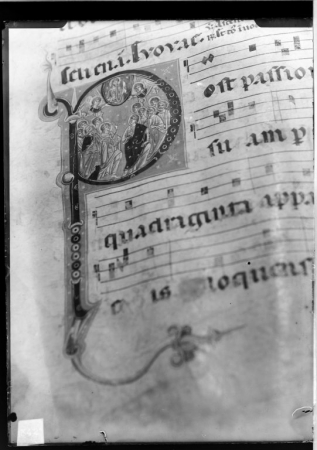 Evovae.
Post passio
su am p
quadraginta appa
e is loquens